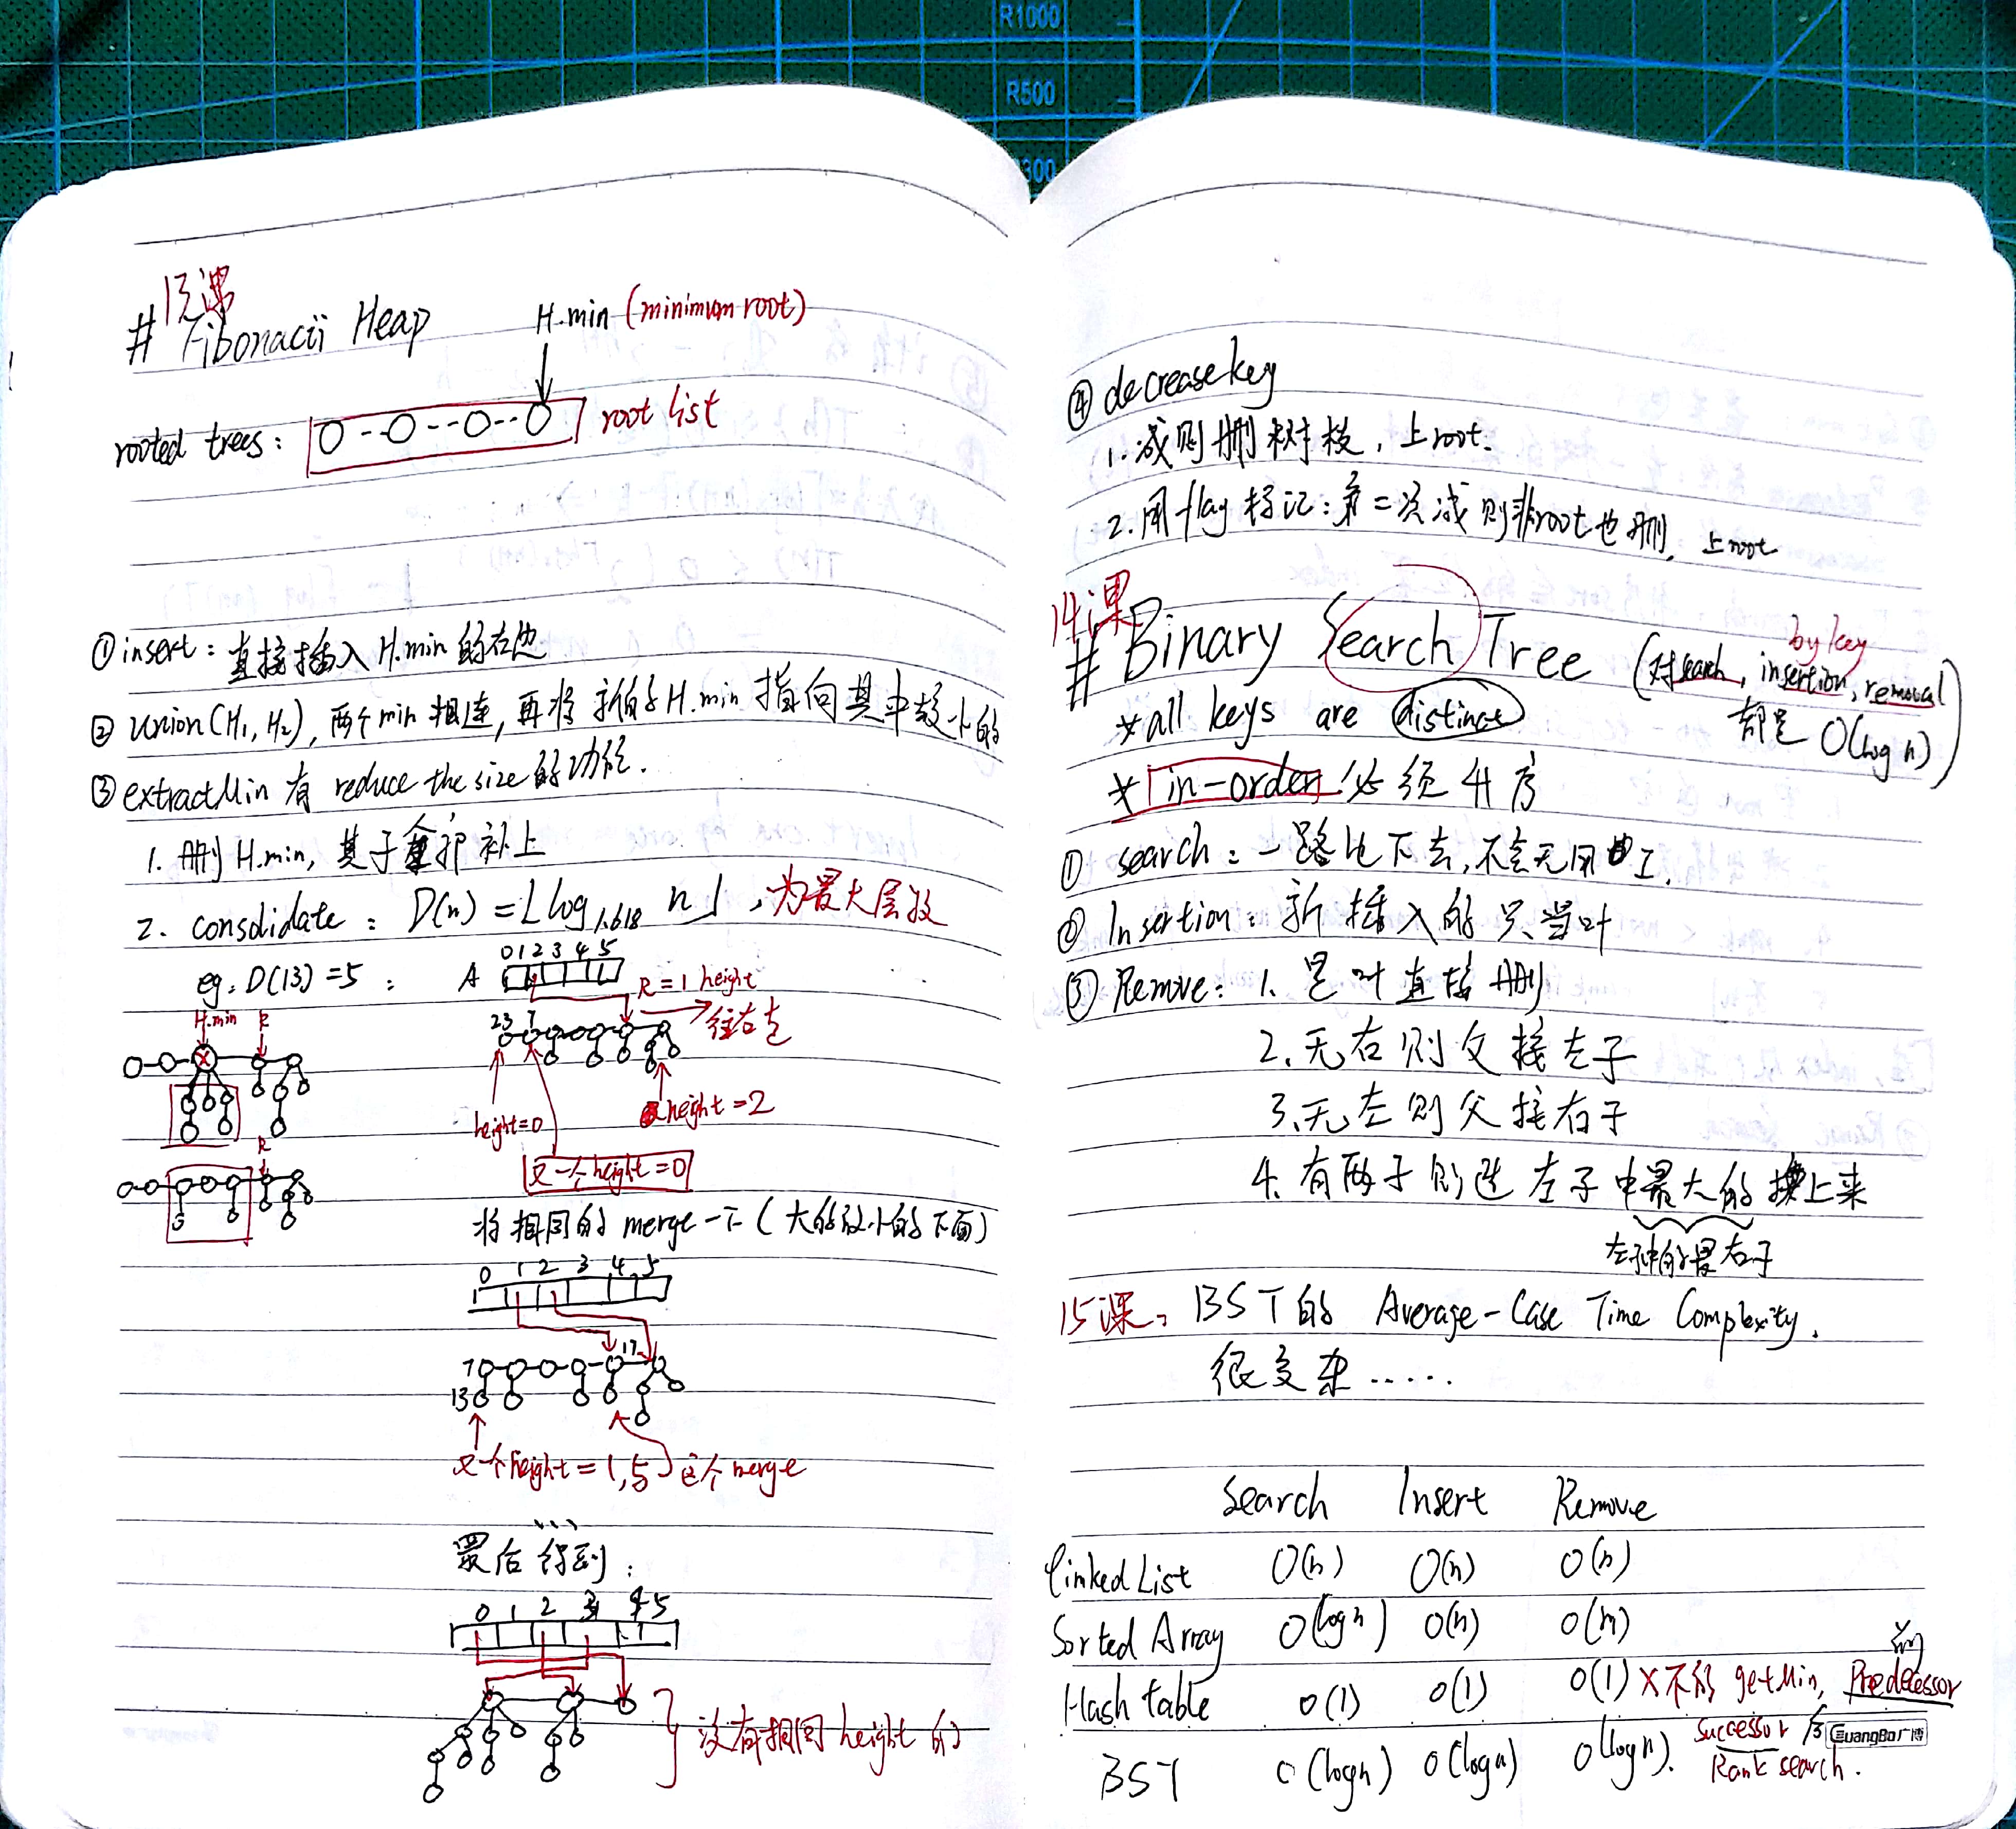 R1000
R500
300
13课
# Fibonacii Heap
H.min (minimum root)
rooted trees:
root list
① insert: 直接插入 H.min 的右边
② Union(H₁, H₂), 两个min 相连, 再将新的 H.min 指向其中较小的
③ extractMin 有 reduce the size 的功能.
1. 删 H.min, 其子全部补上
2. consolidate: D(n) = ⌊log₁.₆₁₈ n⌋, 为最大层数
eg: D(13) = 5 :
A
0 1 2 3 4 5
R = 1 height
往右走
H.min R
23 7
height=0
height=2
又一个 height=0
R
将相同的 merge 一下 (大的放小的下面)
0 1 2 3 4 5
7 17
13
又一个 height=1, 与 这个 merge
最后得到:
0 1 2 3 4 5
没有相同 height 的
④ decreasekey
1. 减则删树枝, 上root.
2. 用 flag 标记: 第二次减则非root也删, 上root
14课
# Binary Search Tree
by key
(对search, insertion, removal
都是 O(log n))
* all keys are distinct
* in-order 必须升序
① search: 一路比下去, 不会无用工.
② Insertion: 新插入的只当叶
③ Remove: 1. 是叶直接删
2. 无右则父接左子
3. 无左则父接右子
4. 有两子则选左子中最大的换上来
左子中的最右子
15课: BST的 Average-Case Time Complexity.
很复杂......
Search Insert Remove
linked List O(n) O(n) O(n)
Sorted Array O(logn) O(n) O(n)
Hash table O(1) O(1) O(1) × 不能 getMin, Predecessor
BST O(logn) O(logn) O(logn). Successor
Rank search.
GuangBo广博